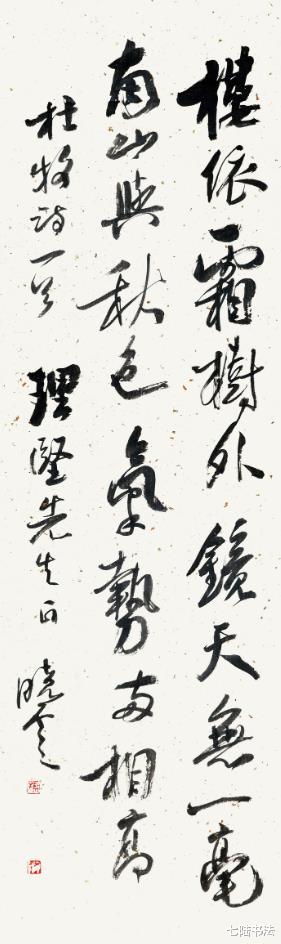 樓依霜樹外鏡天無一毫
南山與秋色氣勢两相高
杜牧詩一首 理堅先生正 曉雲
七陆书法